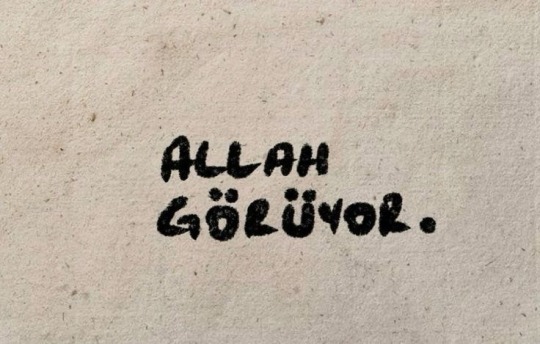 ALLAH
GÖRÜYOR.